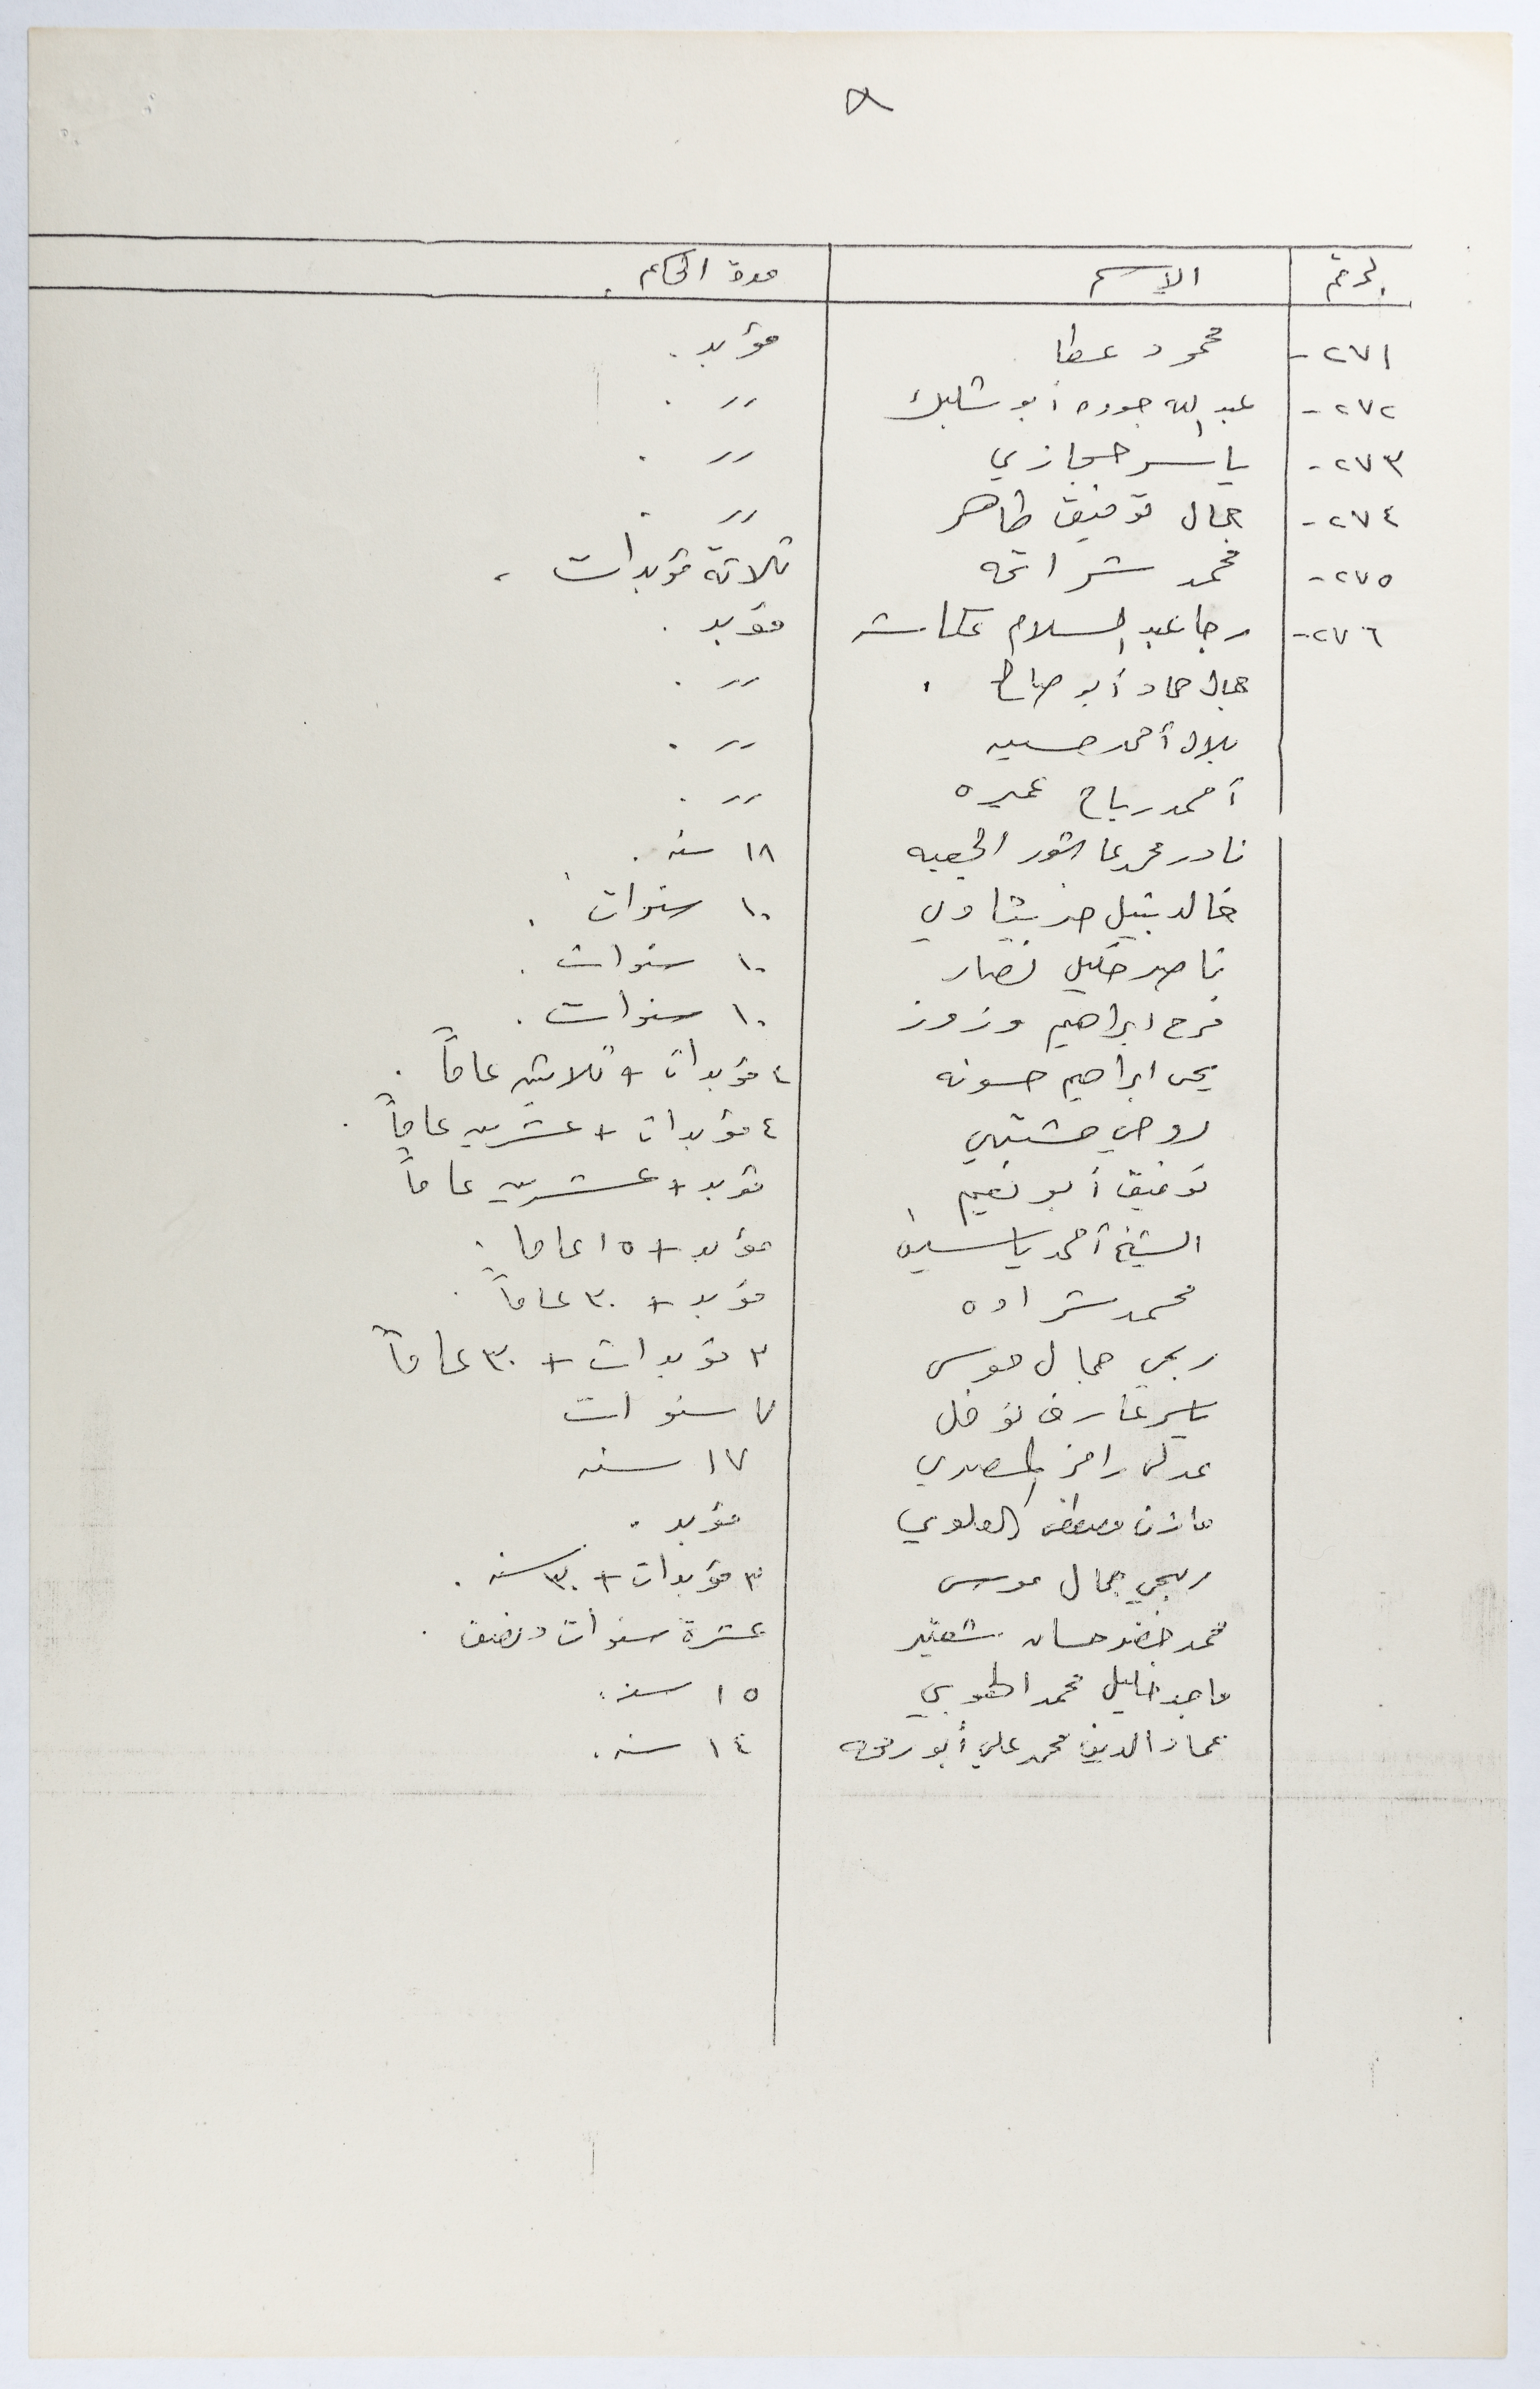 ٨
الرقم الاسم مدة الحكم
٢٧١- محمود عطا مؤبد.
٢٧٢- عبد الله جوده أبو شلبك 〃 .
٢٧٣- ياسر حجازي 〃 .
٢٧٤- جمال توفيق طاهر 〃 .
٢٧٥- محمد شراتحه ثلاثة مؤبدات.
٢٧٦- رجا عبد السلام عكاشه مؤبد.
جمال حماد أبو صالح. 〃 .
بلال أحمد حسين 〃 .
أحمد رباح عميره 〃 .
نادر محمد عاشور الجعبه ١٨ سنه.
خالد نبيل ١٠ سنوات.
ناصر خليل نصار ١٠ سنوات.
فرح ابراهيم وزوز ١٠ سنوات.
يحي ابراهيم حسونه ٤ مؤبدات + ثلاثين عاماً.
روحي مشتهي ٤ مؤبدات + عشرين عاماً.
توفيق أبو نعيم مؤبد + عشرين عاماً
الشيخ أحمد ياسين مؤبد + ١٥ عاما.
محمد شراده مؤبد + ٣٠ عاماً.
ربحي جمال موسى ٣ مؤبدات + ٣٠ عاماً
ياسر عارف نوفل ٧ سنوات
عدلي رامز المصري ١٧ سنه
مازن مصطفى العلوي مؤبد.
ربحي جمال موسى ٣ مؤبدات + ٣٠ سنه.
محمد خضر حسان شعتير عشرة سنوات ونصف.
ماجد خليل محمد الهوبي ١٥ سنه.
عماد الدين محمد علي أبو رحمه ١٤ سنه.